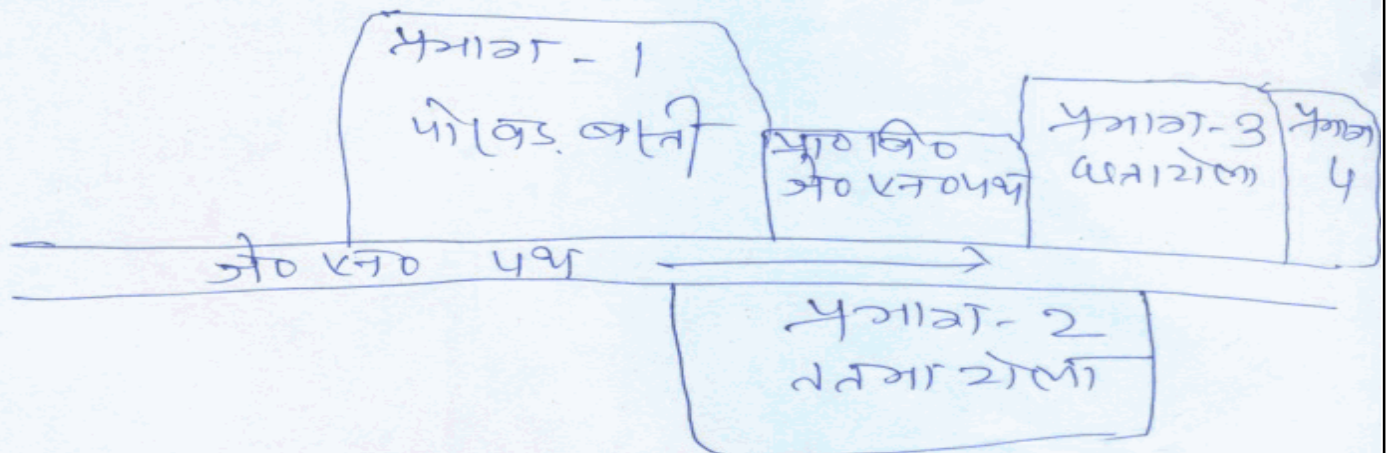 प्रभाग - 1
पोखड़ बस्ती
प्रा० वि०
जे० एन० पथ
प्रभाग-3
प्रभाग
4
जे० एन० पथ
प्रभाग-2
ततमा टोला